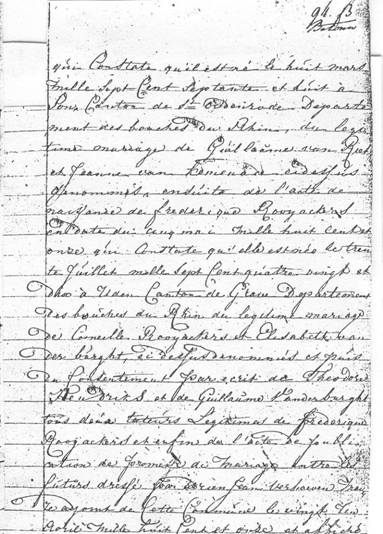 94. B
qui Constate qu'il est né le huit mars
mille Sept Cent Septante et huit à
Canton de St Oenrode Departe
ment des bouches du Rhin, du legi
time mariage de Guillaume van
et Jeanne van cidessus
denommés, ensuite de l'acte de
naissance de frederique Rooyackers
en date du cinq mai mille huit cent et
onze qui Constate qu'elle est née le tren
te Juillet mille Sept Cent quatre vingt et
deux à Uden Canton de Grave Departement
des bouches du Rhin du legitime mariage
de Corneille Rooyackers et Elisabeth van
der berght, ci dessus denommés et puis
du Consentement par ecrit de Theodore
Hendriks et de Guillaume Vanderberght
tous deux tuteurs Legitimes de frederique
Rooyackers et enfin de l'acte de publi
cation de promesse de mariage entre les
futurs dressé par Adrien Jean Verhoeven mai
re adjoint de Cette Commune le vingt
Avril mille huit Cent et onze et affiché